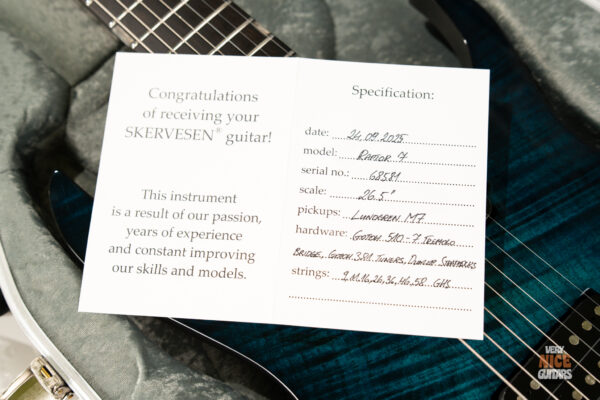 Congratulations
of receiving your
SKERVESEN® guitar!
This instrument
is a result of our passion,
years of experience
and constant improving
our skills and models.
Specification:
date: 24.09.2025
model: RAPTOR 7
serial no.: 68581
scale: 26.5"
pickups: LUNDGREN M7
hardware: GOTOH 510-7 TREMOLO
BRIDGE, GOTOH 381 TUNERS, DUNLOP STRAPLOCKS
strings: 9,11,16,26,36,46,58 GHS
VERY
NICE
GUITARS